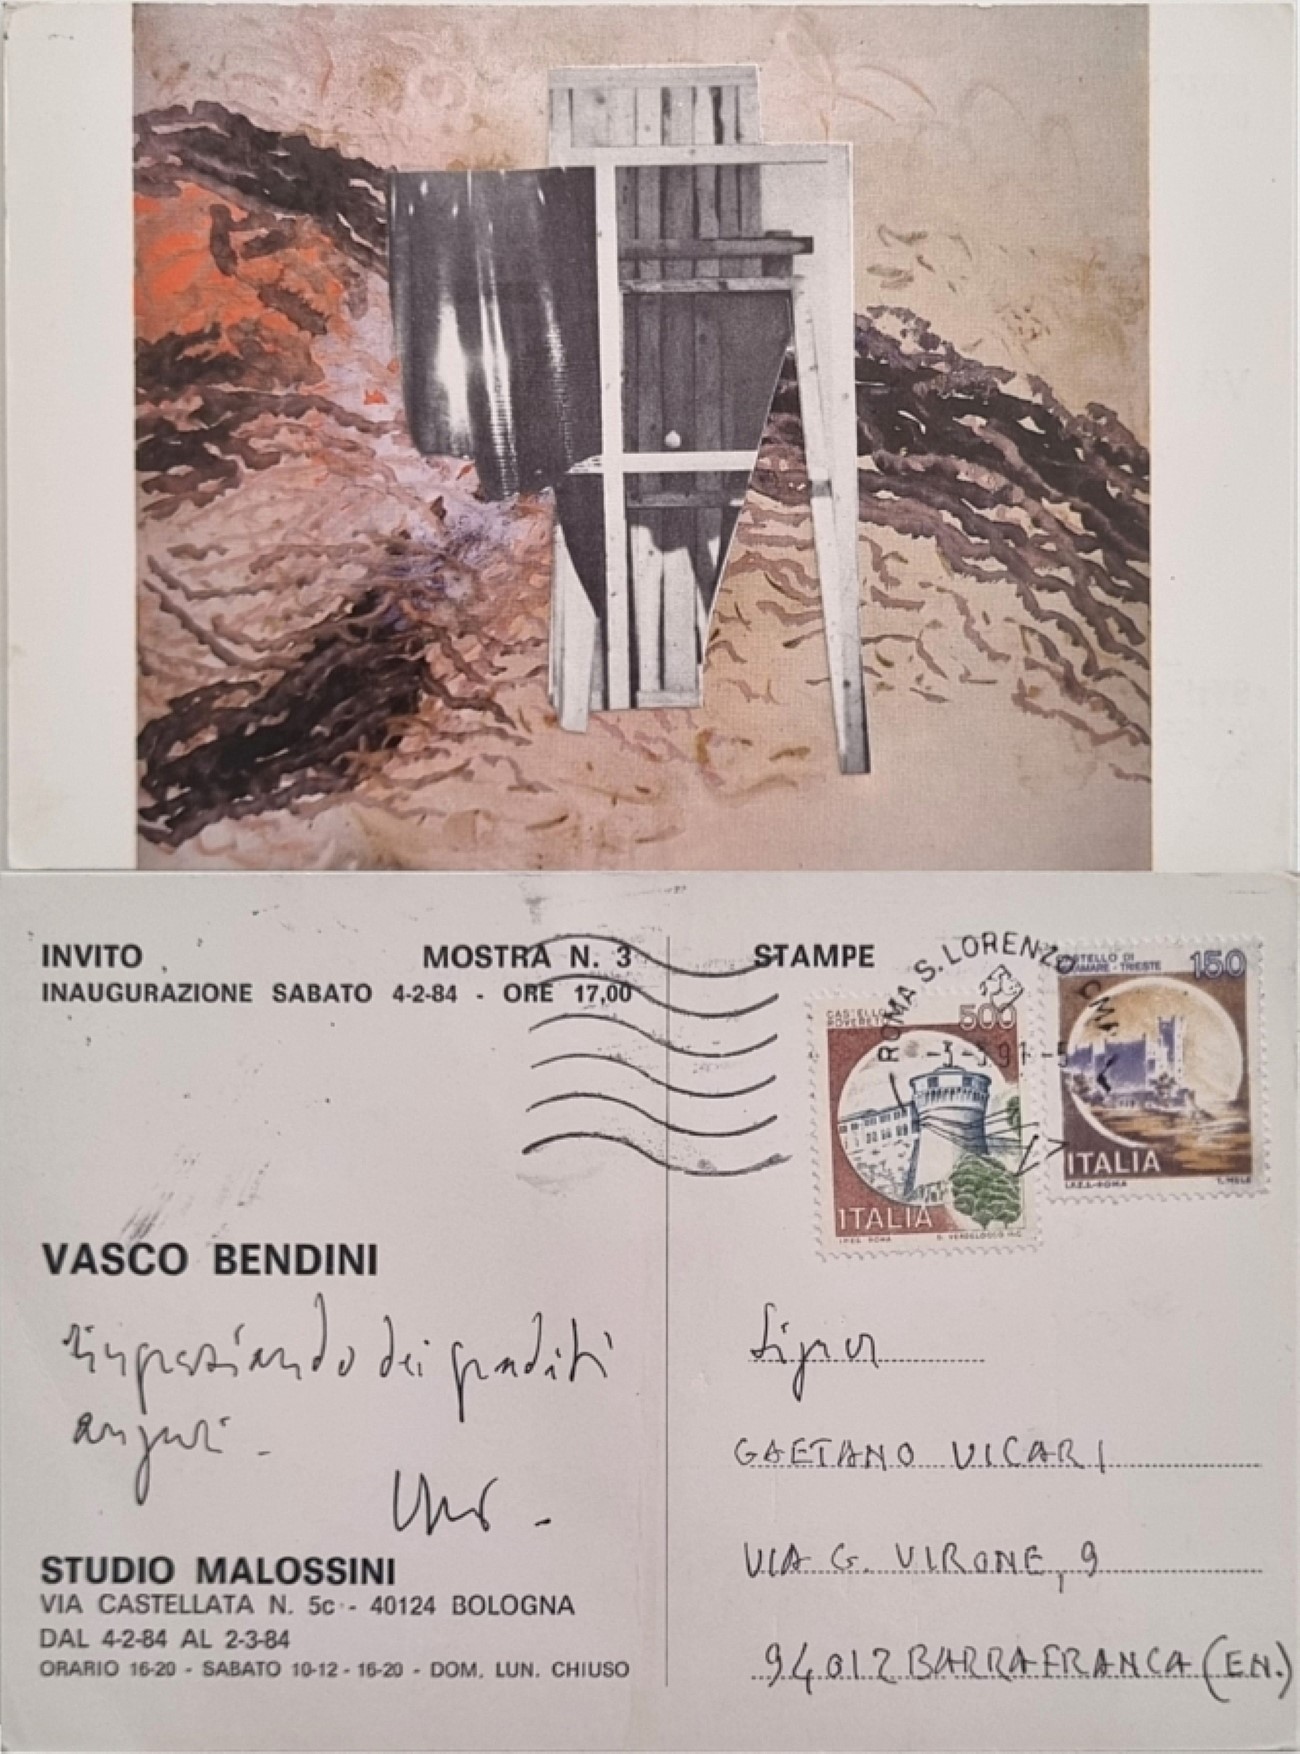 INVITO MOSTRA N. 3
INAUGURAZIONE SABATO 4-2-84 - ORE 17,00
VASCO BENDINI
ringraziando dei graditi
auguri -
STUDIO MALOSSINI
VIA CASTELLATA N. 5c - 40124 BOLOGNA
DAL 4-2-84 AL 2-3-84
ORARIO 16-20 - SABATO 10-12 - 16-20 - DOM. LUN. CHIUSO
STAMPE
ROMA S. LORENZO CMP
CASTELLO
ROVERETO
500
ITALIA
I.P.Z.S. ROMA
CASTELLO DI
MIRAMARE - TRIESTE
150
ITALIA
I.P.Z.S.-ROMA T. MELE
Signor
GAETANO VICARI
VIA G. VIRONE, 9
94012 BARRAFRANCA (EN.)